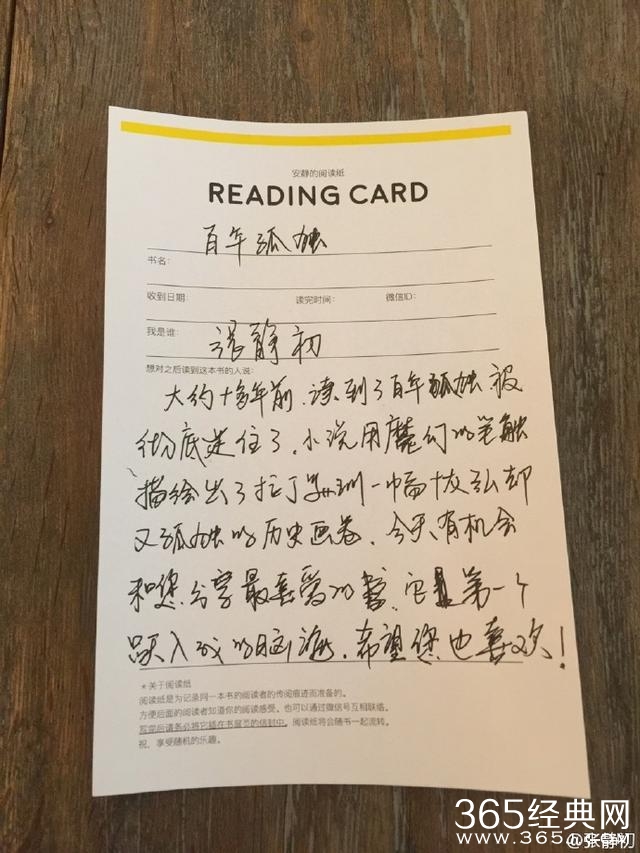 安静的阅读纸
READING CARD
书名: 百年孤独
收到日期: 读完时间: 微信ID:
我是谁: 张静初
想对之后读到这本书的人说:
大约十多年前,读到了百年孤独被
彻底迷住了,小说用魔幻的笔触
描绘出了拉丁美洲一幅恢弘却
又孤独的历史画卷,今天有机会
和您分享最喜爱的书,它是第一个
跃入我的脑海,希望您也喜欢!
*关于阅读纸
阅读纸是为记录同一本书的阅读者的传阅痕迹而准备的。
方便后面的阅读者知道你的阅读感受。也可以通过微信号互相联络。
写完后请务必将它插在书扉页的信封中。阅读纸将会随书一起流转。
祝,享受随机的乐趣。
365经典网
www.365
@张静初